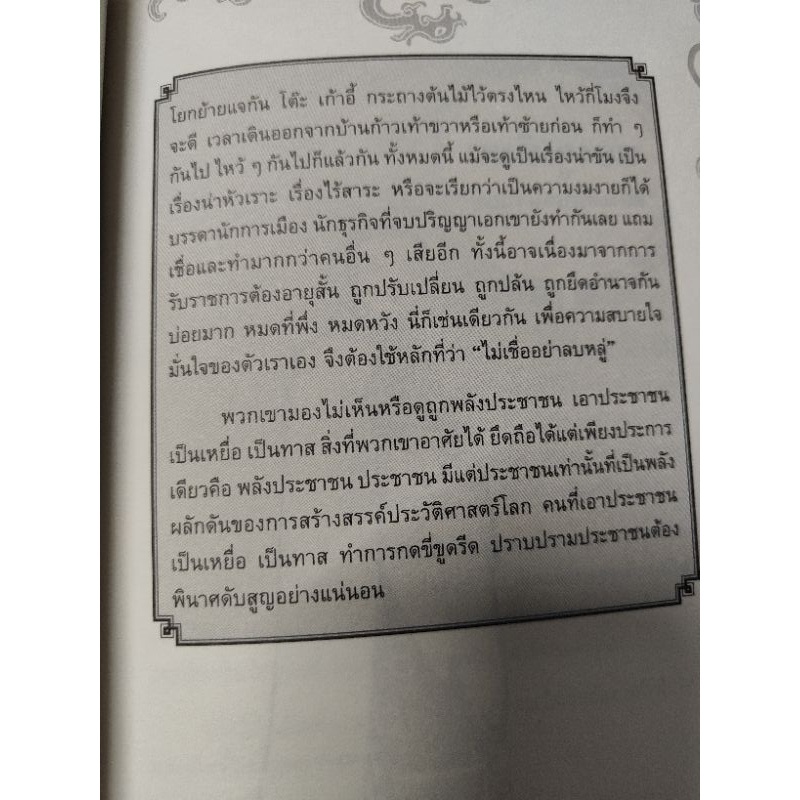 โยกย้ายแจกัน โต๊ะ เก้าอี้ กระถางต้นไม้ไว้ตรงไหน ไหว้กี่โมงจึง
จะดี เวลาเดินออกจากบ้านก้าวเท้าขวาหรือเท้าซ้ายก่อน ก็ทำ ๆ
กันไป ไหว้ ๆ กันไปก็แล้วกัน ทั้งหมดนี้ แม้จะดูเป็นเรื่องน่าขัน เป็น
เรื่องน่าหัวเราะ เรื่องไร้สาระ หรือจะเรียกว่าเป็นความงมงายก็ได้
บรรดานักการเมือง นักธุรกิจที่จบปริญญาเอกเขายังทำกันเลย แถม
เชื่อและทำมากกว่าคนอื่น ๆ เสียอีก ทั้งนี้อาจเนื่องมาจากการ
รับราชการต้องอายุสั้น ถูกปรับเปลี่ยน ถูกปล้น ถูกยึดอำนาจกัน
บ่อยมาก หมดที่พึ่ง หมดหวัง นี่ก็เช่นเดียวกัน เพื่อความสบายใจ
มั่นใจของตัวเราเอง จึงต้องใช้หลักที่ว่า “ไม่เชื่ออย่าลบหลู่”
พวกเขามองไม่เห็นหรือดูถูกพลังประชาชน เอาประชาชน
เป็นเหยื่อ เป็นทาส สิ่งที่พวกเขาอาศัยได้ ยึดถือได้แต่เพียงประการ
เดียวคือ พลังประชาชน ประชาชน มีแต่ประชาชนเท่านั้นที่เป็นพลัง
ผลักดันของการสร้างสรรค์ประวัติศาสตร์โลก คนที่เอาประชาชน
เป็นเหยื่อ เป็นทาส ทำการกดขี่ขูดรีด ปราบปรามประชาชนต้อง
พินาศดับสูญอย่างแน่นอน